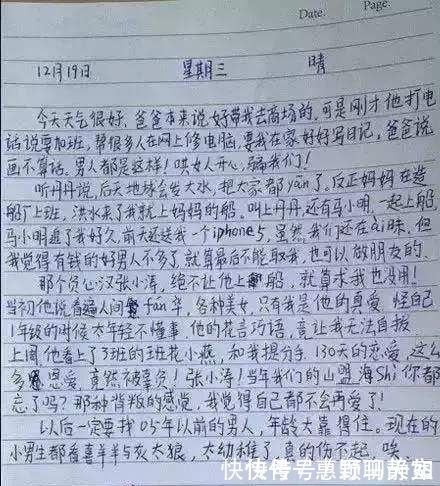 Date.
Page
12月19日 星期三 晴
今天天气很好，爸爸本来说好带我去商场的，可是刚才他打电
话说要加班，帮很多人在网上修电脑，要我在家好好写日记，爸爸说
画不算话，男人都是这样！哄女人开心，骗我们！
听丹丹说，后天地球会发大水，把大家都yān了。反正妈妈在造
船厂上班，洪水来了我就上妈妈的船。叫上丹丹，还有马小明，一起上船，
马小明追了我好久，前天还送我一个iphone5，虽然我们还在ai昧，但
我觉得有钱的好男人不多了，就算最后不能取我，也可以做朋友的，
那个负心汉张小涛，绝不让他上船，就算求我也没用！
当初他说看遍人间fán华，各种美女，只有我是他的真爱，怪自己
1年级的时候太年轻不懂事，他的花言巧语，竟让我无法自拔
上周他看上了3班的班花小燕，和我提分手，130天的恋爱，这么
多恩爱，竟然被辜负！张小涛！当年我们的山盟海Shi你都
忘了吗？那种背叛的感觉，我觉得自己都不会再爱了！
以后一定要找05年以前的男人，年龄大靠得住。现在的
小男生都看喜羊羊与灰太狼，太幼稚了，真的伤不起，唉。